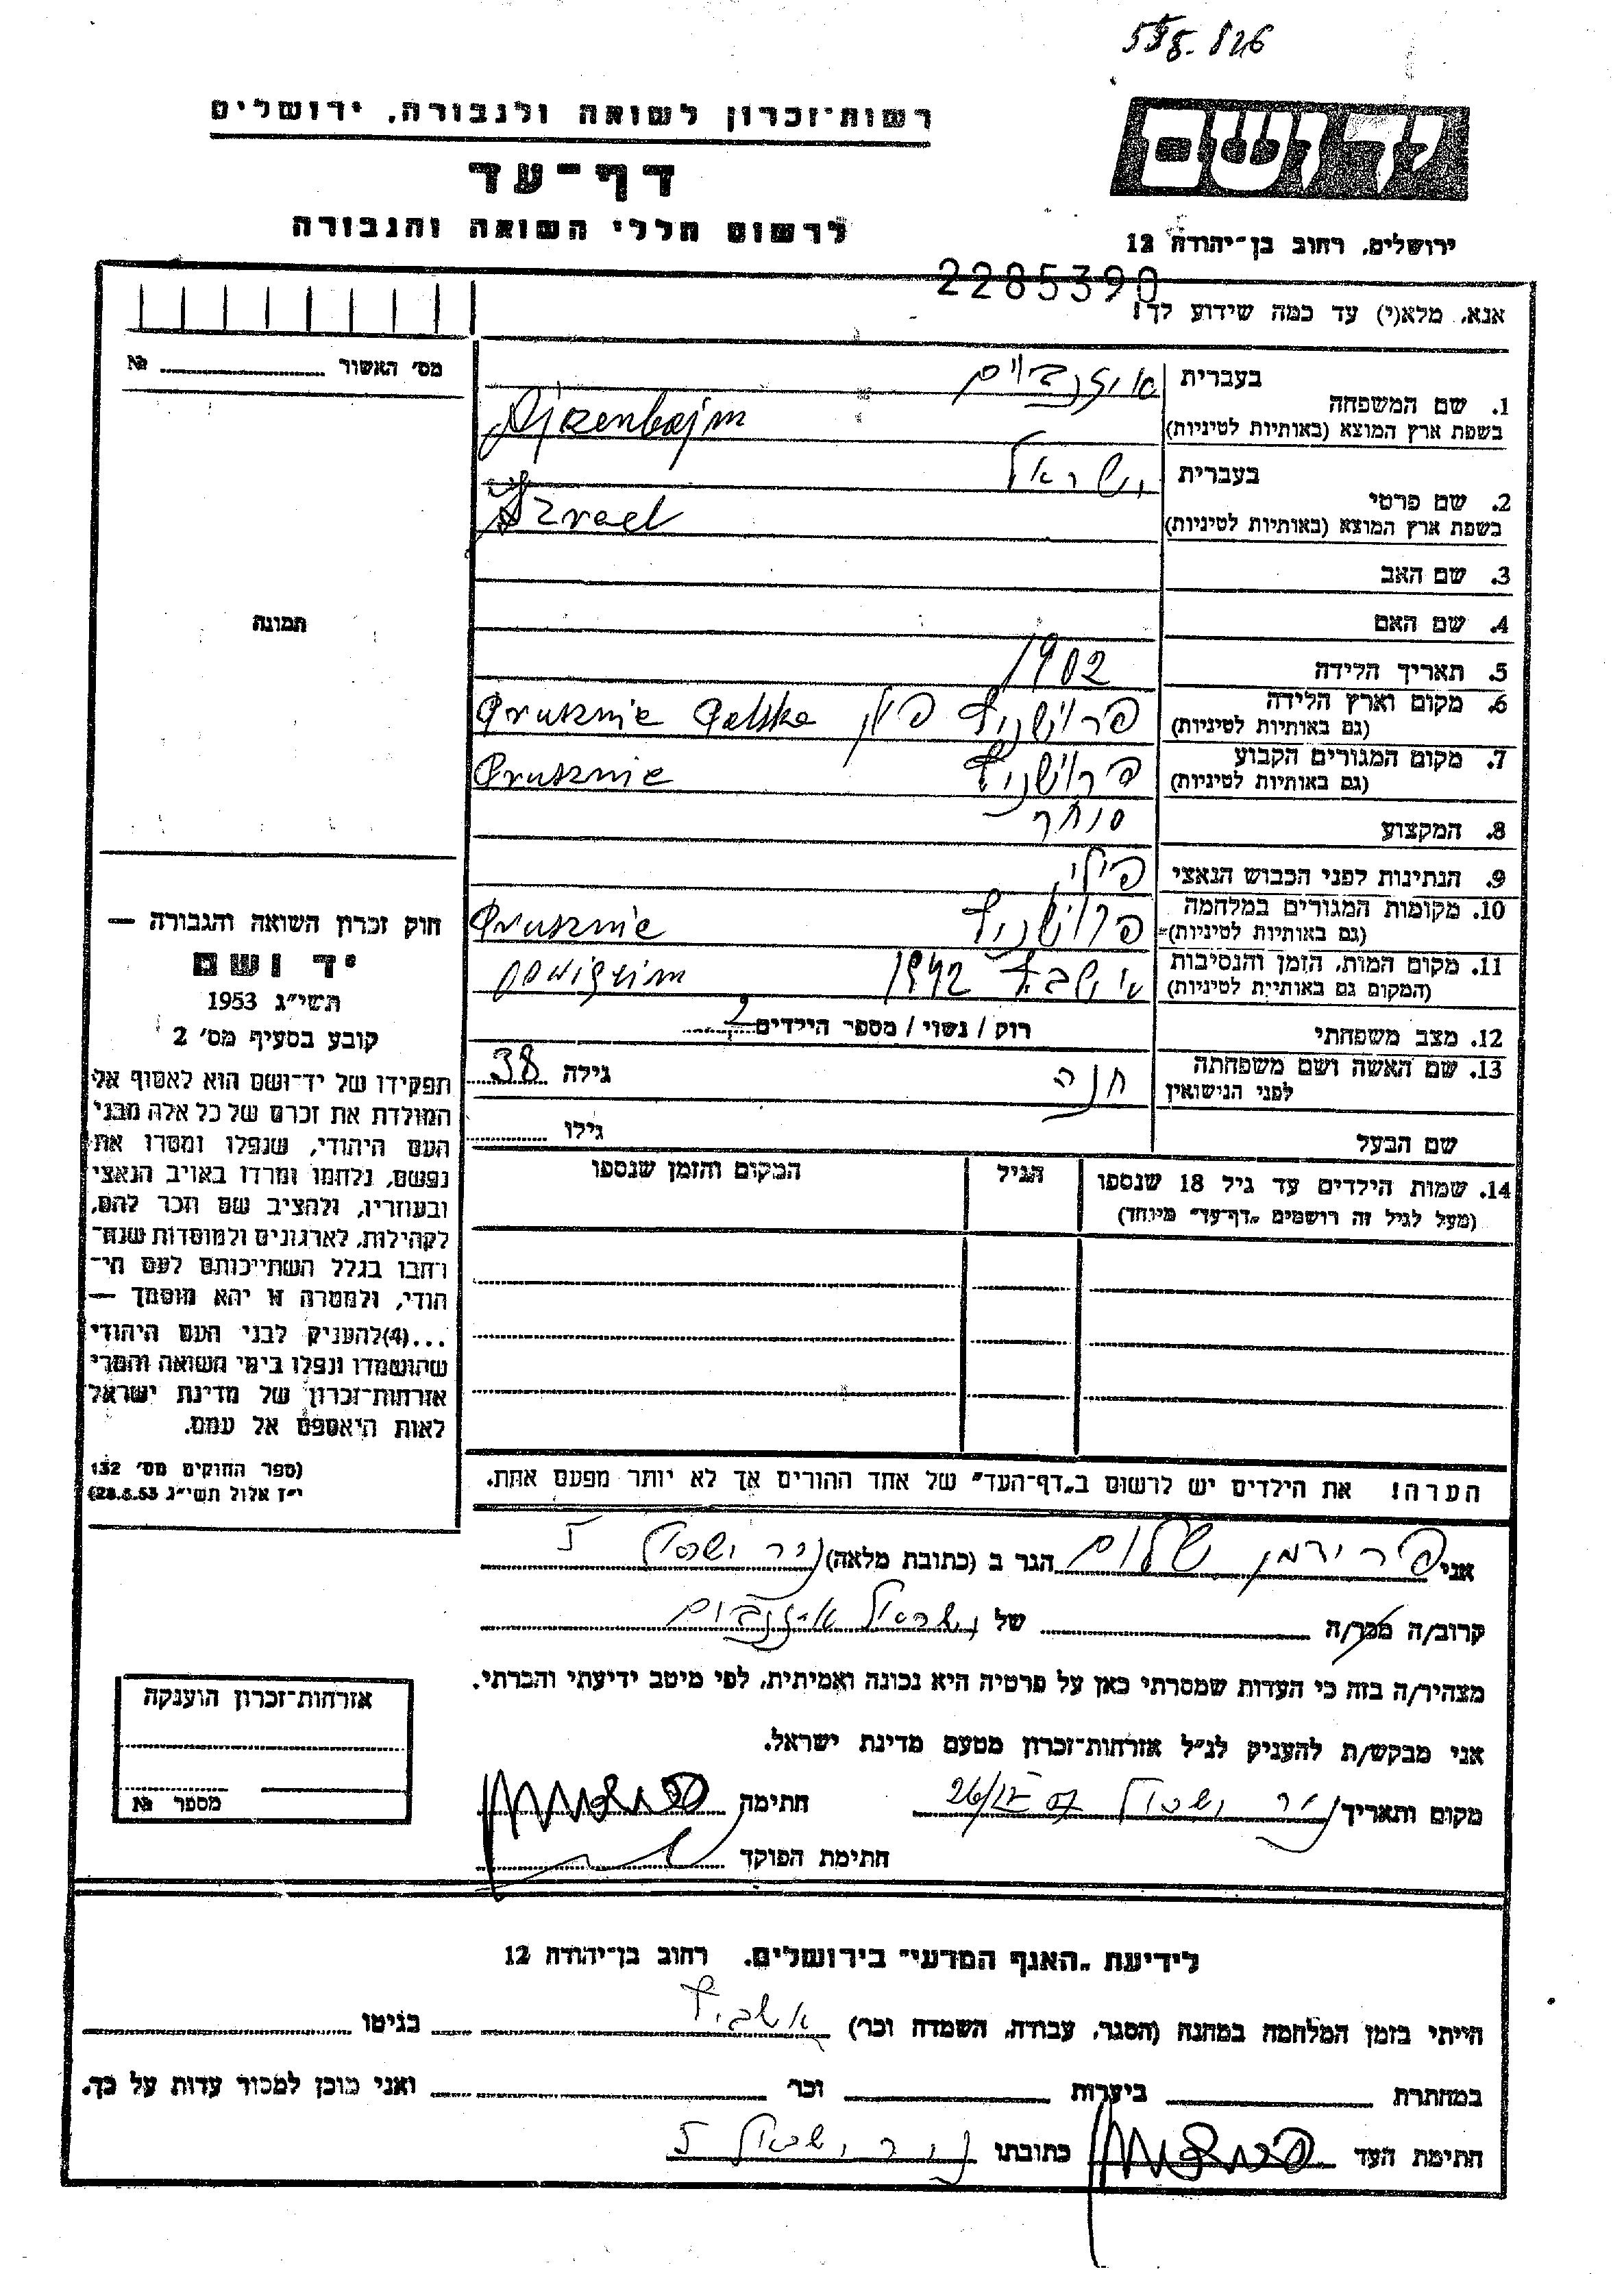 558.826
רשות־זכרון לשואה ולגבורה, ירושלים
דף־עד
לרשום חללי השואה והגבורה
ידושם
ירושלים, רחוב בן־יהודה 12
2285390
אנא, מלא(י) עד כמה שידוע לך!
מס' האשור №
בעברית איזנבוים
1. שם המשפחה
בשפת ארץ המוצא (באותיות לטיניות) Ajzenbojm
בעברית ישראל
2. שם פרטי
בשפת ארץ המוצא (באותיות לטיניות) Izrael
3. שם האב
תמונה
4. שם האם
5. תאריך הלידה 1902
6. מקום וארץ הלידה פרושניץ פולין Prusznic Polska
(גם באותיות לטיניות)
7. מקום המגורים הקבוע פרושניץ Prusznic
(גם באותיות לטיניות)
8. המקצוע סוחר
9. הנתינות לפני הכבוש הנאצי פולני
10. מקומות המגורים במלחמה פרושניץ Prusznic
(גם באותיות לטיניות)
11. מקום המות, הזמן והנסיבות אושביץ 1942
(המקום גם באותיית לטיניות)
12. מצב משפחתי רווק / נשוי / מספר הילדים 2
13. שם האשה ושם משפחתה חנה גילה 38
לפני הנישואין
שם הבעל גילו
14. שמות הילדים עד גיל 18 שנספו הגיל המקום והזמן שנספו
(מעל לגיל זה רושמים "דף־עד" מיוחד)
חוק זכרון השואה והגבורה —
יד ושם
תשי"ג 1953
קובע בסעיף מס' 2
תפקידו של יד־ושם הוא לאסוף אל
המולדת את זכרם של כל אלה מבני
העם היהודי, שנפלו ומסרו את
נפשם, נלחמו ומרדו באויב הנאצי
ובעוזריו, ולהציב שם וזכר להם,
לקהילות, לארגונים ולמוסדות שנח־
רחבו בגלל השתייכותם לעם הי־
הודי, ולמטרה זו יהא מוסמך —
...(4)להעניק לבני העם היהודי
שהושמדו ונפלו בימי השואה והמרי
אזרחות־זכרון של מדינת ישראל
לאות היאספם אל עמם.
(ספר החוקים מס' 132
י"ז אלול תשי"ג 28.8.53)
הערה! את הילדים יש לרשום ב"דף־העד" של אחד ההורים אך לא יותר מפעם אחת.
אני פרידמן שלום הגר ב (כתובת מלאה) ניר ישראל 5
קרוב/ה מכר/ה של ישראל איזנבוים
מצהיר/ה בזה כי העדות שמסרתי כאן על פרטיה היא נכונה ואמיתית, לפי מיטב ידיעתי והכרתי.
אני מבקש/ת להעניק לנ"ל אזרחות־זכרון מטעם מדינת ישראל.
מקום ותאריך ניר ישראל חתימה
חתימת הפוקד
אזרחות־זכרון הוענקה
מספר №
לידיעת "האגף המדעי" בירושלים, רחוב בן־יהודה 12
הייתי בזמן המלחמה במחנה (הסגר, עבודה, השמדה וכו') אושביץ בגיטו
במחתרת ביערות וכו' ואני מוכן למסור עדות על כך.
חתימת העד כתובתו ניר ישראל 5